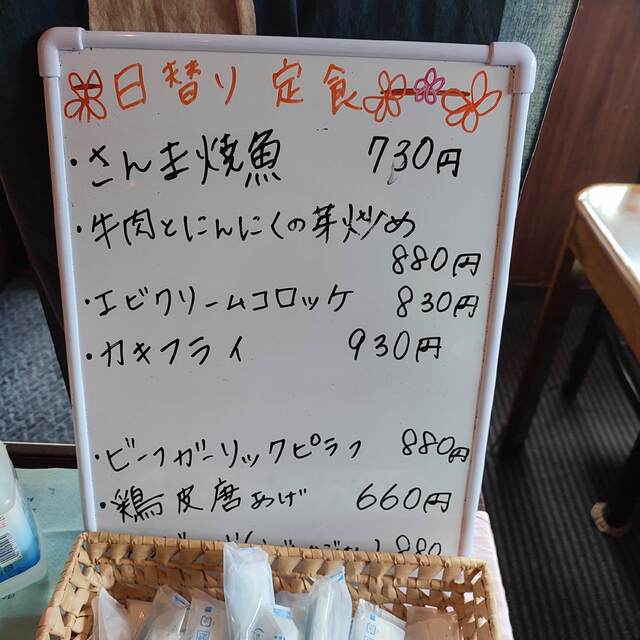 日替り定食
・さんま焼魚 730円
・牛肉とにんにくの芽炒め
880円
・エビクリームコロッケ 830円
・カキフライ 930円
・ビーフガーリックピラフ 880円
・鶏皮唐あげ 660円
880